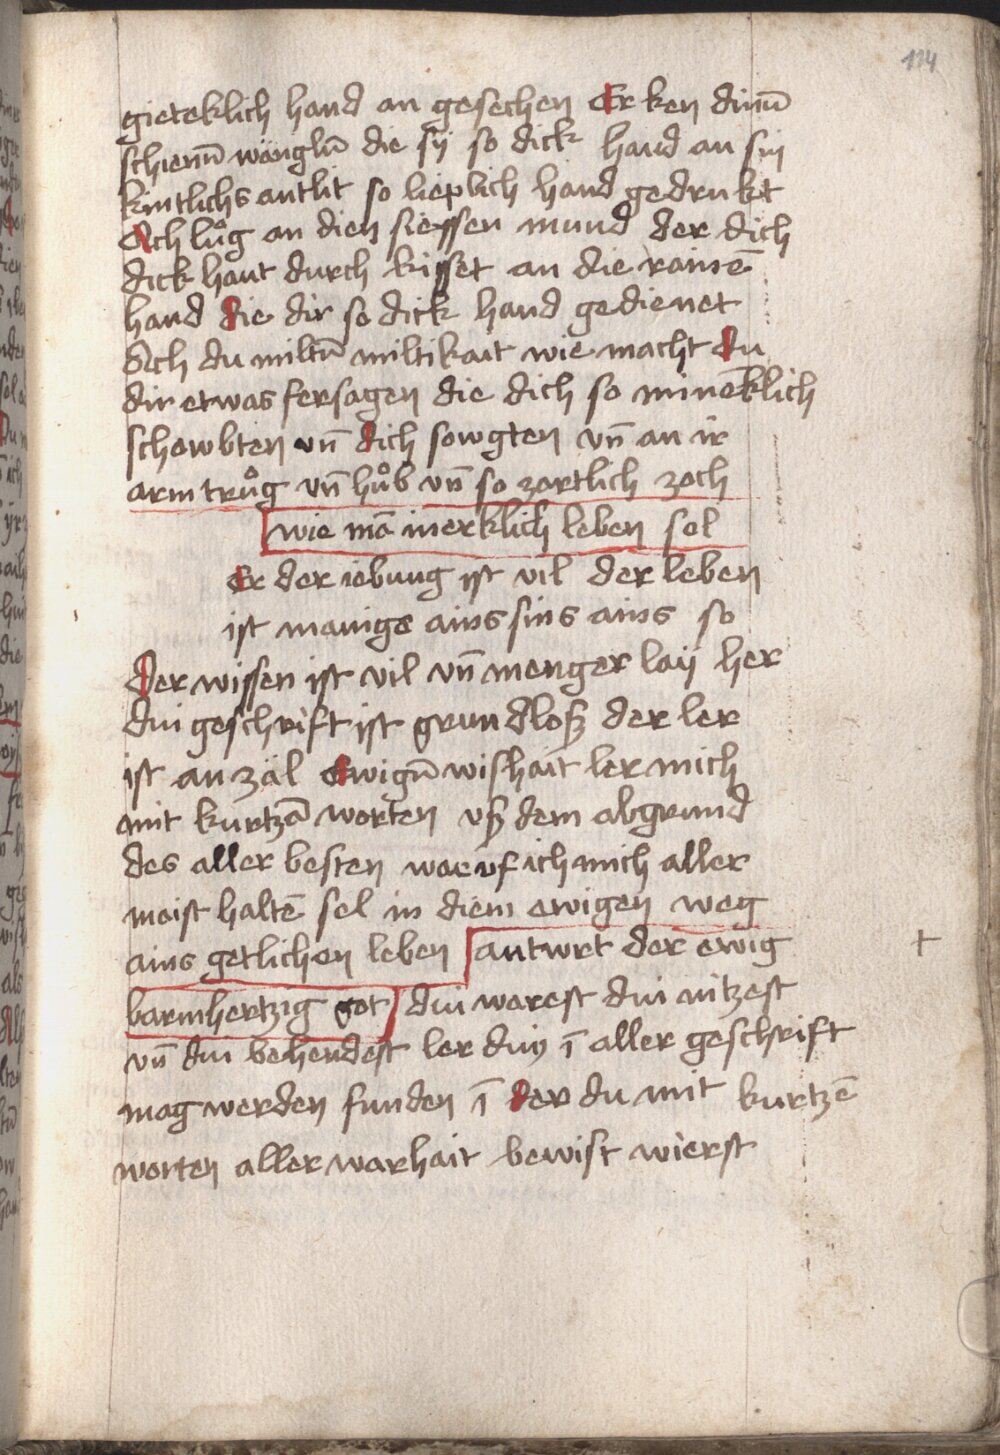 114
gieteklich hand an gesechen Er ken dinū
schienū wänglū die sÿ so dick hand an sin
kintlichs antlit so lieplich hand gedrukt
Ach luͦg an dien siessen mund der dich
dick haut durch kisset an die rainē
hand die dir so dick hand gedienet
Ach du miltū miltikait wie macht du
dir etwas fersagen die dich so mineklich
schowbten vn̄ dich sowgten vn̄ an ir
arm truͦg vn̄ huͦb vn̄ so zartlich zoch
wie mā inerklich leben sol
Er der iebung ist vil der leben
ist manigs ains sins ains so
Der wissen ist vil vn̄ menger laÿ her
dui geschrift ist grundloß der ler
ist an zäl Ewigū wishait ler mich
mit kurtzā worten vß dem abgrund
des aller besten war vf ich mich aller
maist haltē sol in diem ewigen weg
ains getlichen leben antwrt der ewig
barmhertzig got dui warest dui nitzest
vn̄ dui behendest ler duiy ī aller geschrift
mag werden funden ī der du mit kurtzē
worten aller warhait bewist wierst